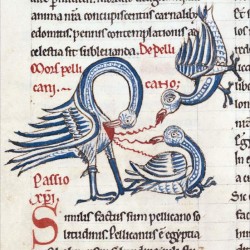 anima nr̄a concupiscentiis carnalib;
edomitis, pennis contemplationis ad
celestia sit sublevanda. De pelli
Mors pelli
cani. cano;
Passio
xp̄i
Similis factus sum pellicano so
litudinis. Pellicanus ē egyptia